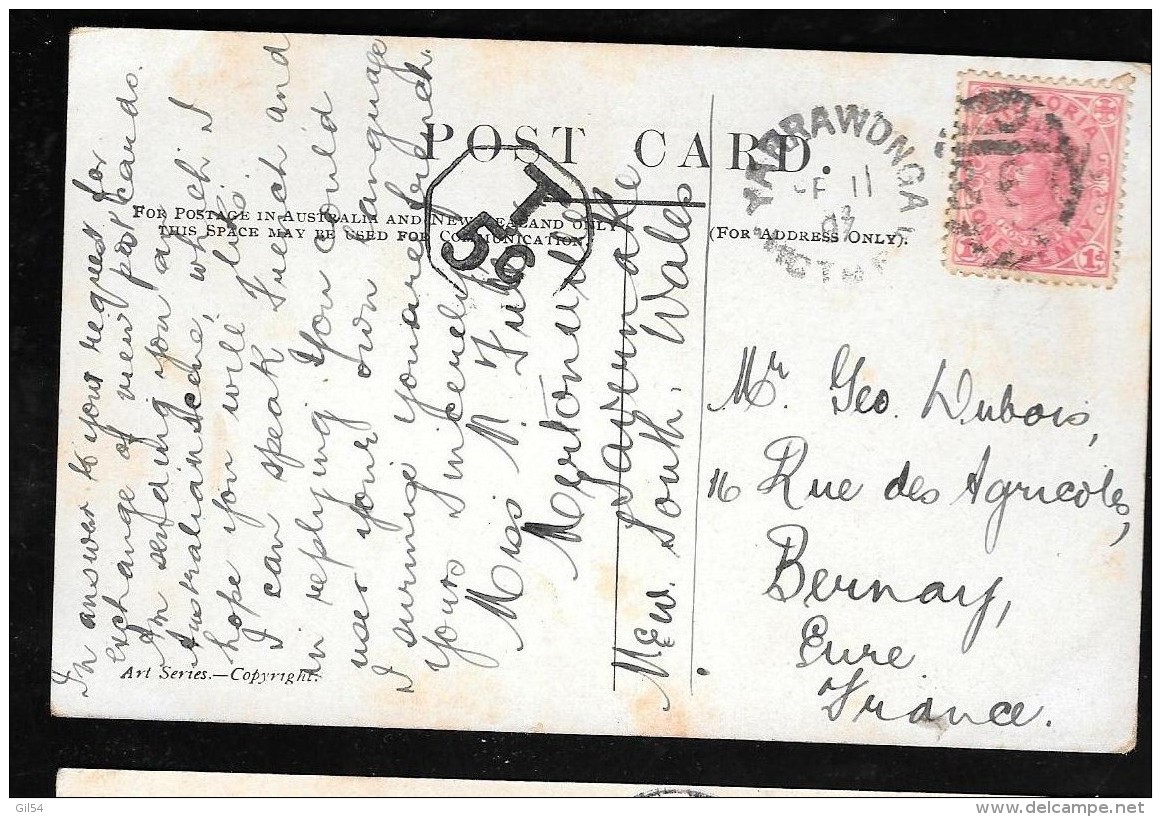 POST CARD.
FOR POSTAGE IN AUSTRALIA AND NEW ZEALAND ONLY
THIS SPACE MAY BE USED FOR COMMUNICATION.
(FOR ADDRESS ONLY).
In answer to your request for
exchange of view postcards.
Im sending you an
Australian scene, which I
hope you will like.
I can speak French and
in replying you could
use your own language
I surmise you are french.
Yours Sincerely
Miss N.
Mertonville
Savernake
New. South. Wales
T
YARRAWONGA
11
07
VICTORIA
ONE PENNY
1d
Mr. Geo. Dubois,
16 Rue des Agricoles,
Bernay,
Eure
France.
Art Series.—Copyright.
Gil54
delcampe.net